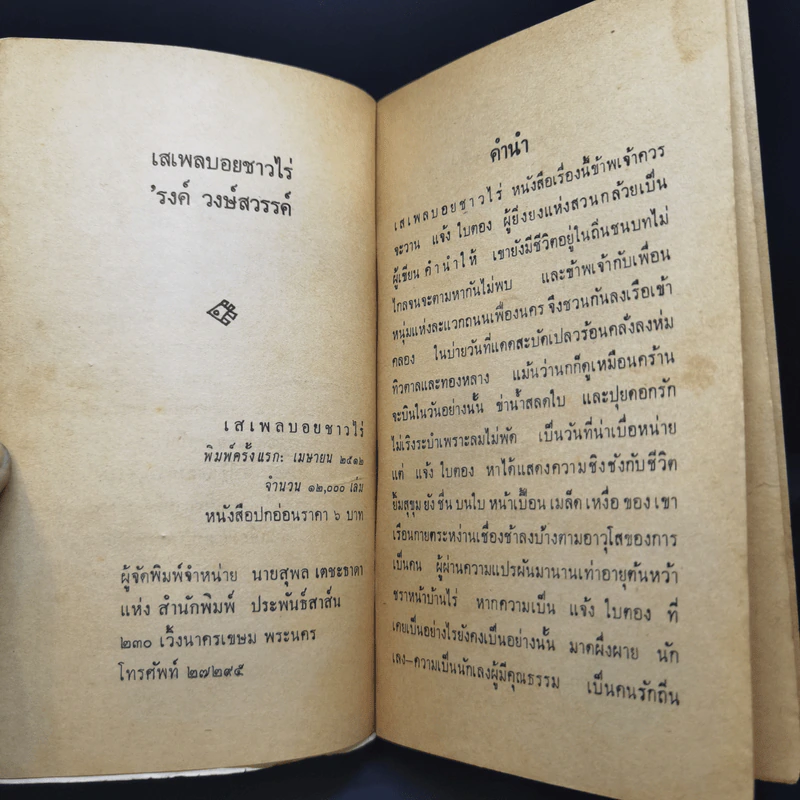 เสเพลบอยชาวไร่
'รงค์ วงษ์สวรรค์
เสเพลบอยชาวไร่
พิมพ์ครั้งแรก: เมษายน ๒๕๑๒
จำนวน ๑๒,๐๐๐ เล่ม
หนังสือปกอ่อนราคา ๖ บาท
ผู้จัดพิมพ์จำหน่าย นายสุพล เตชะธาดา
แห่ง สำนักพิมพ์ ประพันธ์สาส์น
๒๓๐ เวิ้งนาครเขษม พระนคร
โทรศัพท์ ๒๗๒๙๕
คำนำ
เสเพลบอยชาวไร่ หนังสือเรื่องนี้ข้าพเจ้าควร
จะวาน แจ้ง ใบตอง ผู้ยิ่งยงแห่งสวนกล้วยเป็น
ผู้เขียนคำนำให้ เขายังมีชีวิตอยู่ในถิ่นชนบทไม่
ไกลจนจะตามหากันไม่พบ และข้าพเจ้ากับเพื่อน
หนุ่มแห่งละแวกถนนเฟื่องนคร จึงชวนกันลงเรือเข้า
คลอง ในบ่ายวันที่แดดสะบัดเปลวร้อนคลั่งลงห่ม
ทิวตาลและทองหลาง แม้นว่านกก็ดูเหมือนคร้าน
จะบินในวันอย่างนั้น ข่าน้ำสลดใบ และปุยดอกรัก
ไม่เริงระบำเพราะลมไม่พัด เป็นวันที่น่าเบื่อหน่าย
แต่ แจ้ง ใบตอง หาได้แสดงความชิงชังกับชีวิต
ยิ้มสุขุมยังชื่นบนใบหน้าเปื้อนเมล็ดเหงื่อของเขา
เรือนกายตระหง่านเชื่องช้าลงบ้างตามอาวุโสของการ
เป็นคน ผู้ผ่านความแปรผันมานานเท่าอายุต้นหว้า
ชราหน้าบ้านไร่ หากความเป็น แจ้ง ใบตอง ที่
เคยเป็นอย่างไรยังคงเป็นอย่างนั้น มาดผึ่งผาย นัก
เลง–ความเป็นนักเลงผู้มีคุณธรรม เป็นคนรักถิ่น